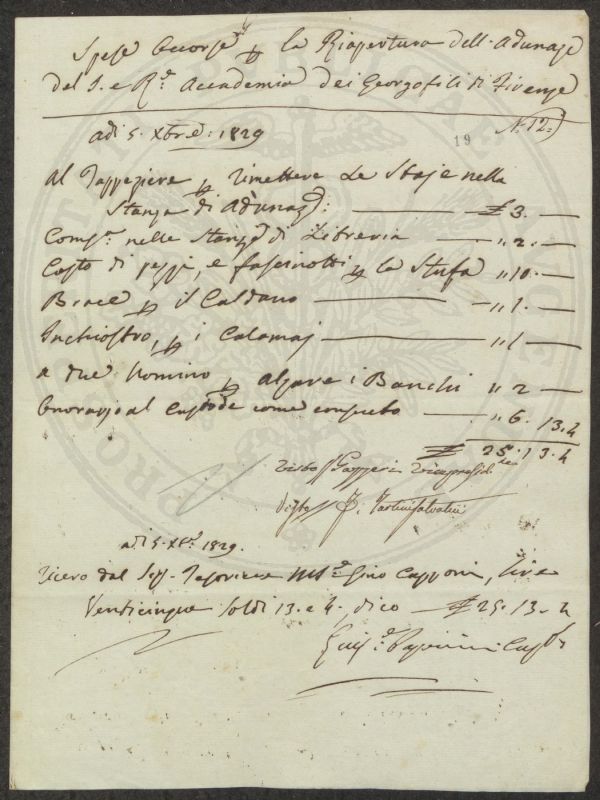 Spese Occorse p la Riapertura dell'Adunaze
del I. e R.e Accademia dei Georgofili di Firenze
N. 12.
19
adì 5. Xbre: 1829
Al Tappeziere p rimettere Le Staje nella
Stanza di Adunaz: £ 3. —
Comp.a nelle Stanze di Libreria — " 2. —
Costo di pezzi, e fascinotti p la Stufa " 10. —
Brace p il Caldano — " 1. —
Inchiostro, p i Calamaj — " 1 —
a due Uomini p alzare i Banchi " 2 —
Onorario al Custode come consueto — " 6. 13. 4
£ 25. 13. 4
visto Gazzeri Vicepresid.te
Visto F. Tartini Salvatici
adì 5. Xbre 1829.
ricevo dal Sig. Tesoriere M.se Gino Capponi, Lire
Venticinque soldi 13. e 4. dico — £ 25. 13. 4
Custe